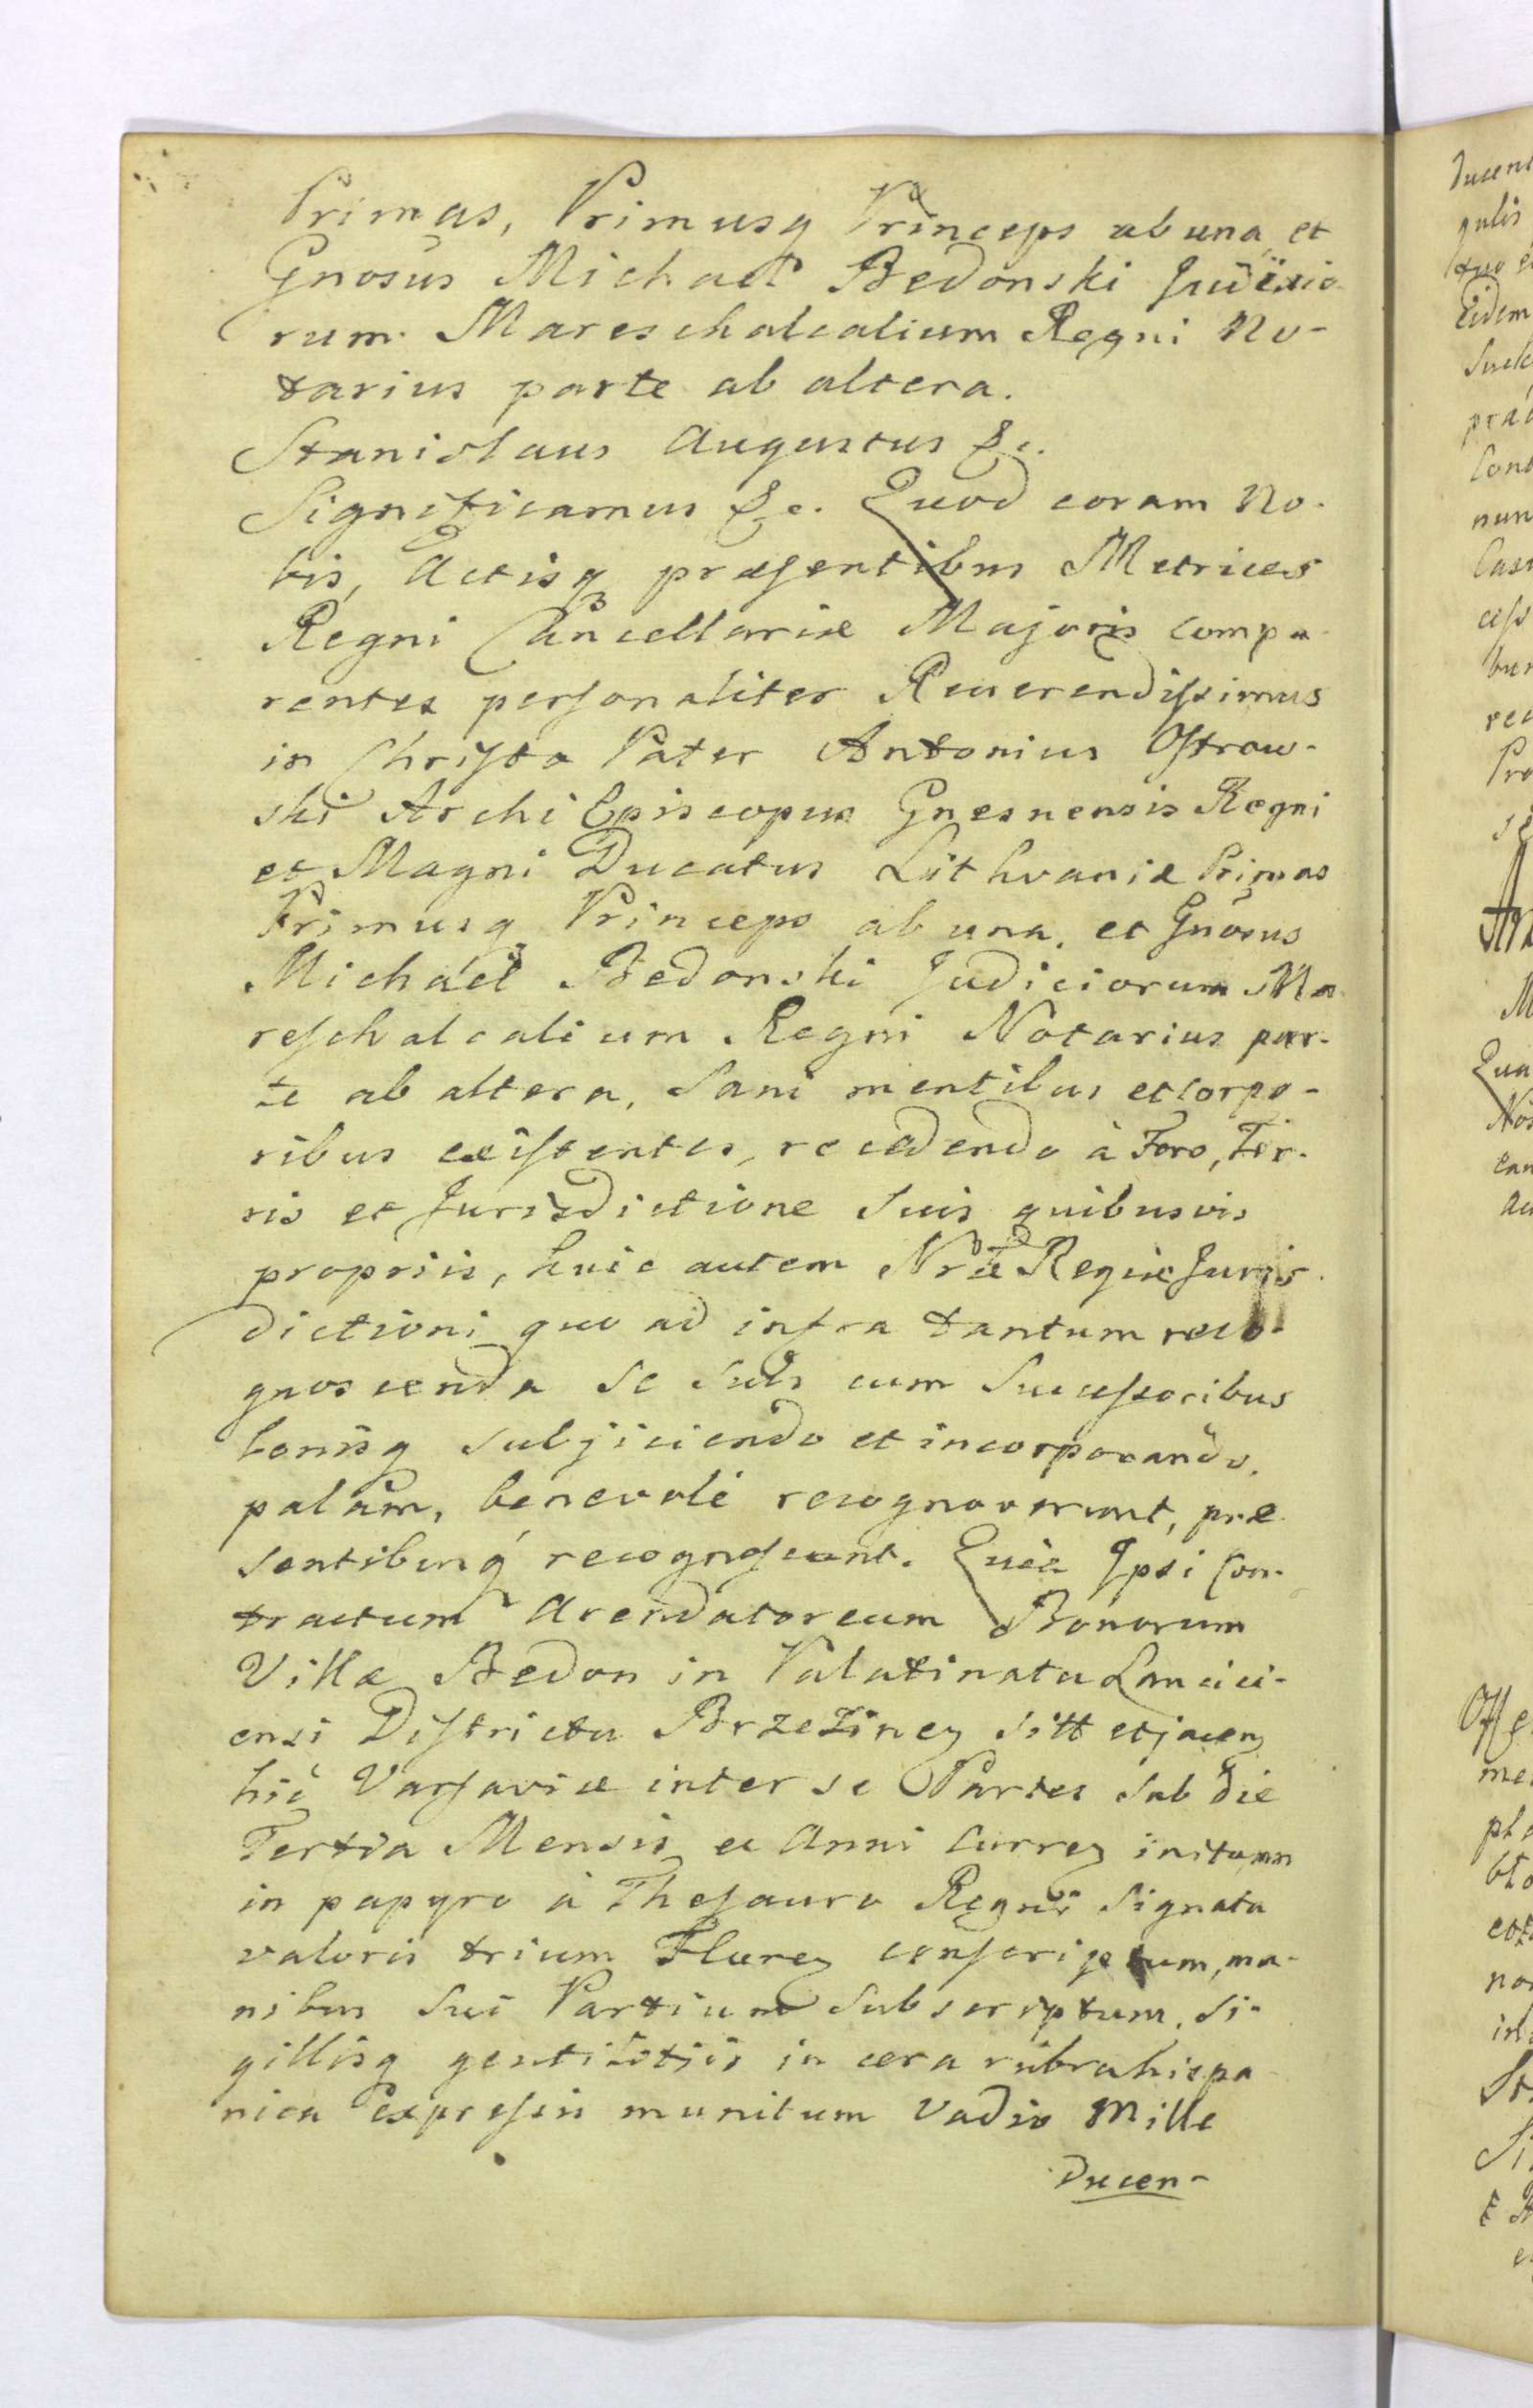 Primas, Primusq Princeps ab una et
Gnosus Michael Bedonski Judicio-
rum Mareschalcalium Regni No-
tarius parte ab altera.
Stanislaus Augustus &c.
Significamus &c. Quod coram No-
bis, Actisq præsentibus Metrices
Regni Cancellariæ Majoris compa-
rentes personaliter Reverendissimus
in Christo Pater Antonius Ostrow-
ski Archi Episcopus Gnesnensis Regni
et Magni Ducatus Lithvaniæ Primas
Primusq Princeps ab una, et Gnosus
Michael Bedonski Judiciorum Ma-
reschalcalium Regni Notarius par-
te ab altera, Sani mentibus et corpo-
ribus existentes, recedendo à Foro, Ter-
ris et Jurisdictione Suis quibusvis
propriis, huic autem Nræ Regiæ Juris-
dictioni quo ad infra tantum reco-
gnoscenda Se Suis cum Successoribus
bonisq subjiciendo et incorporando,
palam, benevolè recognoverunt, præ-
sentibusq recognoscunt. Quia Ipsi Con-
tractum Arendatoreum Bonorum
Villæ Bedon in Palatinatu Lancici-
ensi Districtu Brzezinen Sitt et jacen
hic Varsaviæ inter se Partes Sub die
Tertia Mensis et Anni Curren initum
in papyro à Thesauro Regni Signata
valoris trium Floren conscriptum, ma-
nibus Sui Partium Subscriptum, Si-
gillisq gentilitiis in cera rubra hispa-
nica expressis munitum Vadio Mille
Ducen-
Ducen
gulis
Eidem
nun
Pro